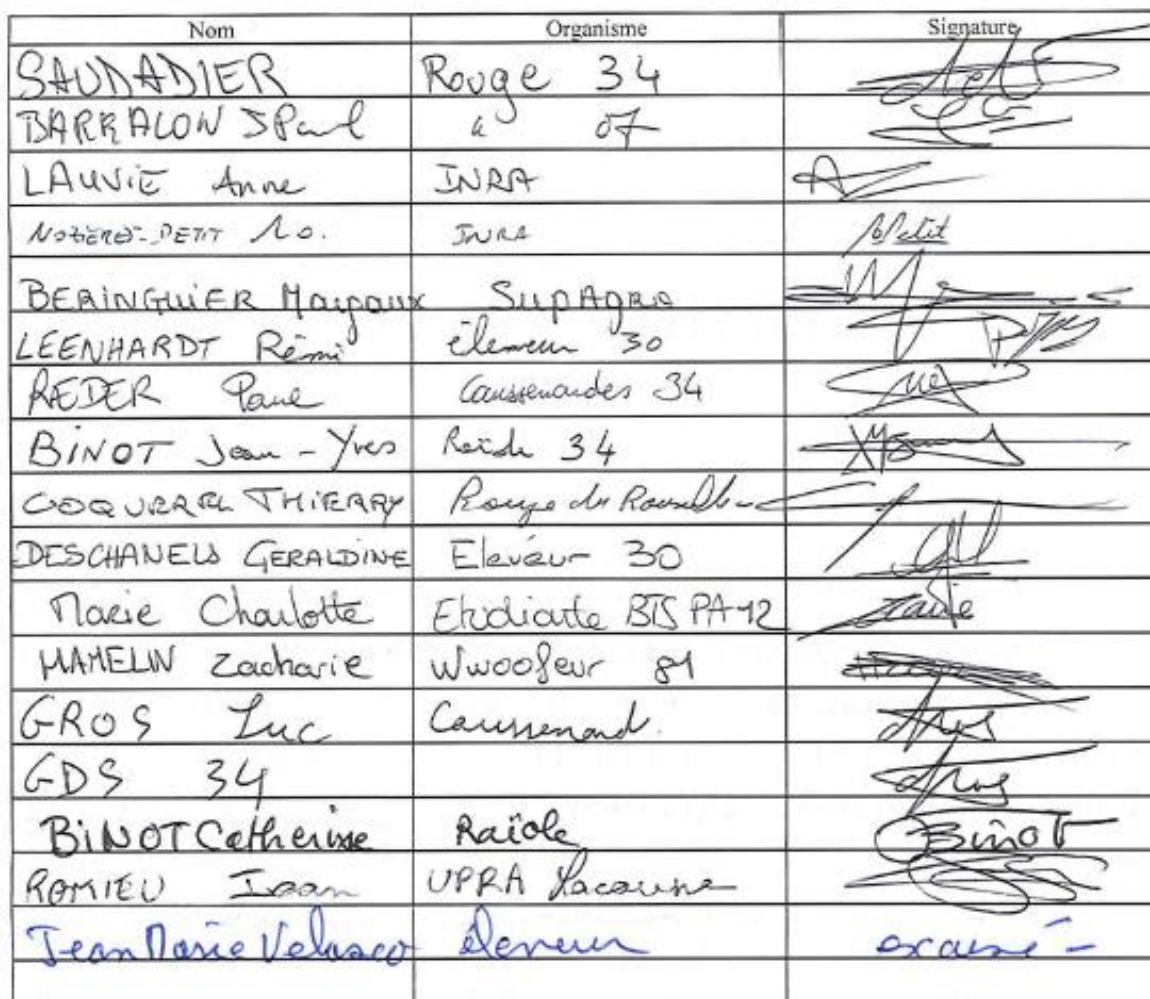 Nom Organisme Signature
SAUDADIER Rouge 34
BARRALON JPaul " 07
LAUVIE Anne INRA
PETIT M.O. INRA MPetit
BERINGUIER Margaux SupAgro
LEENHARDT Rémi éleveur 30
RÆDER Caussenardes 34
BINOT Jean-Yves Raïole 34
COQUEREL THIERRY Rouge du Roussillon
DESCHANELS GERALDINE Eleveur 30
Marie Charlotte Etudiante BTS PA 12 Marie
HAMELIN Zacharie Wwoofeur 81
GROS Luc Caussenard. Gros
GDS 34 Gros
BiNOT Catherine Raïole Binot
ROMIEU UPRA Lacaune
Jean Marie Velasco éleveur excusé -